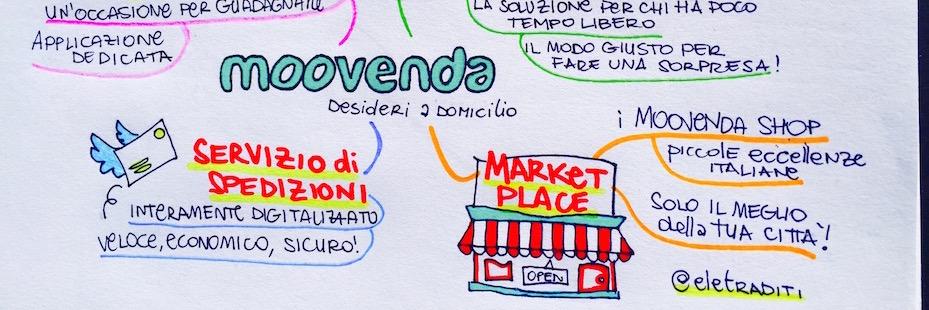 UN'OCCASIONE PER GUADAGNARE
APPLICAZIONE
DEDICATA
LA SOLUZIONE PER CHI HA POCO
TEMPO LIBERO
IL MODO GIUSTO PER
FARE UNA SORPRESA!
moovenda
Desideri a DOMICILIO
SERVIZIO di
SPEDIZIONI
INTERAMENTE DIGITALIZZATO
VELOCE, ECONOMICO, SICURO!
MARKET
PLACE
OPEN
i MOOVENDA SHOP
PICCOLE ECCELLENZE
ITALIANE
SOLO IL MEGLIO
della TUA CITTA'!
@eleTRADITI